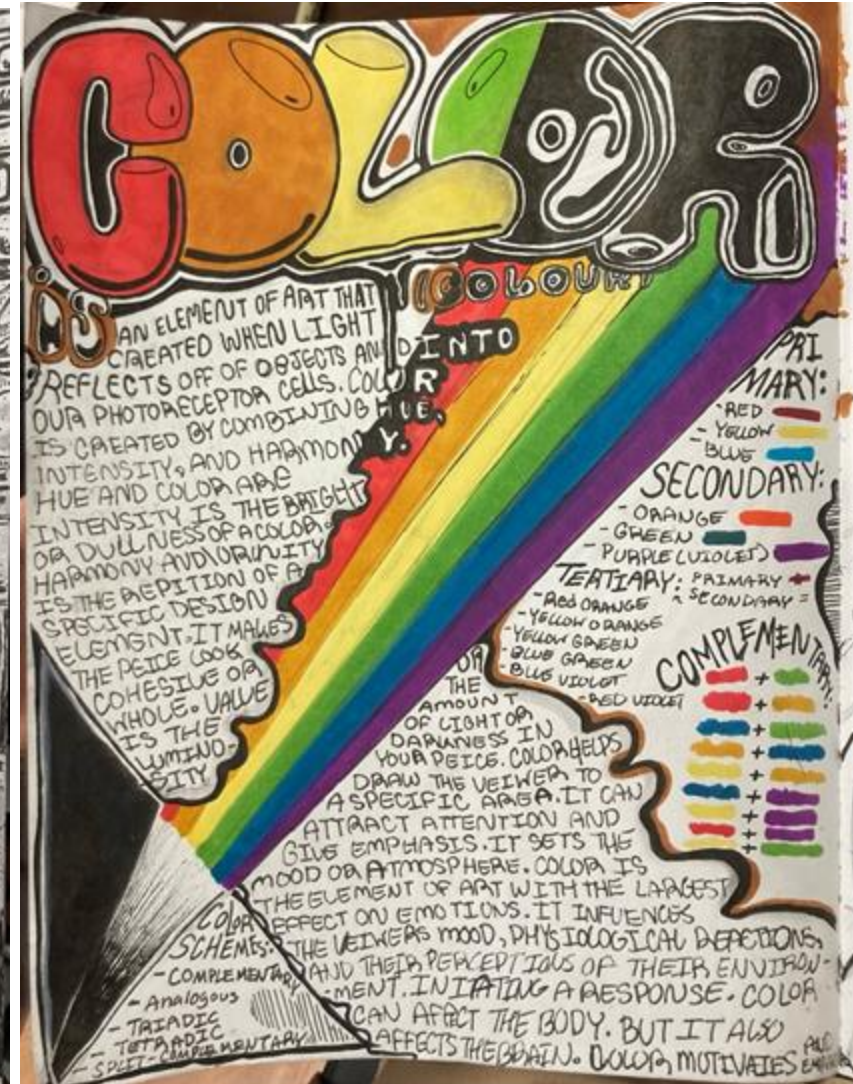 COLOR
(COLOUR)
IS AN ELEMENT OF ART THAT
CREATED WHEN LIGHT
REFLECTS OFF OF OBJECTS AND INTO
OUR PHOTORECEPTOR CELLS. COLOR
IS CREATED BY COMBINING HUE,
INTENSITY, AND HARMONY.
HUE AND COLOR ARE
INTENSITY IS THE BRIGHT
OR DULLNESS OF A COLOR.
HARMONY AND/OR UNITY
IS THE REPITION OF A
SPECIFIC DESIGN
ELEMENT. IT MAKES
THE PEICE LOOK
COHESIVE OR
WHOLE. VALUE
IS THE
LUMINO-
SITY
OR
THE
AMOUNT
OF LIGHT OR
DARKNESS IN
YOUR PEICE. COLOR HELPS
DRAW THE VEIWER TO
A SPECIFIC AREA. IT CAN
ATTRACT ATTENTION AND
GIVE EMPHASIS. IT SETS THE
MOOD OR ATMOSPHERE. COLOR IS
THE ELEMENT OF ART WITH THE LARGEST
EFFECT ON EMOTIONS. IT INFLUENCES
THE VEIWERS MOOD, PHYSIOLOGICAL REACTIONS,
AND THEIR PERCEPTIONS OF THEIR ENVIRON-
MENT. INITATING A RESPONSE. COLOR
CAN AFFECT THE BODY. BUT IT ALSO
AFFECTS THE BRAIN. COLOR MOTIVATES AND
PRI
MARY:
- RED
- YELLOW
- BLUE
SECONDARY:
- ORANGE
- GREEN
- PURPLE (VIOLET)
TERTIARY: PRIMARY +
SECONDARY =
- RED ORANGE
- YELLOW ORANGE
- YELLOW GREEN
- BLUE GREEN
- BLUE VIOLET
- RED VIOLET
COMPLEMENTARY:
+
+
+
+
+
+
+
+
+
COLOR
SCHEMES:
- COMPLEMENTARY
- Analogous
- TRIADIC
- TETRADIC
- SPLIT-COMPLEMENTARY